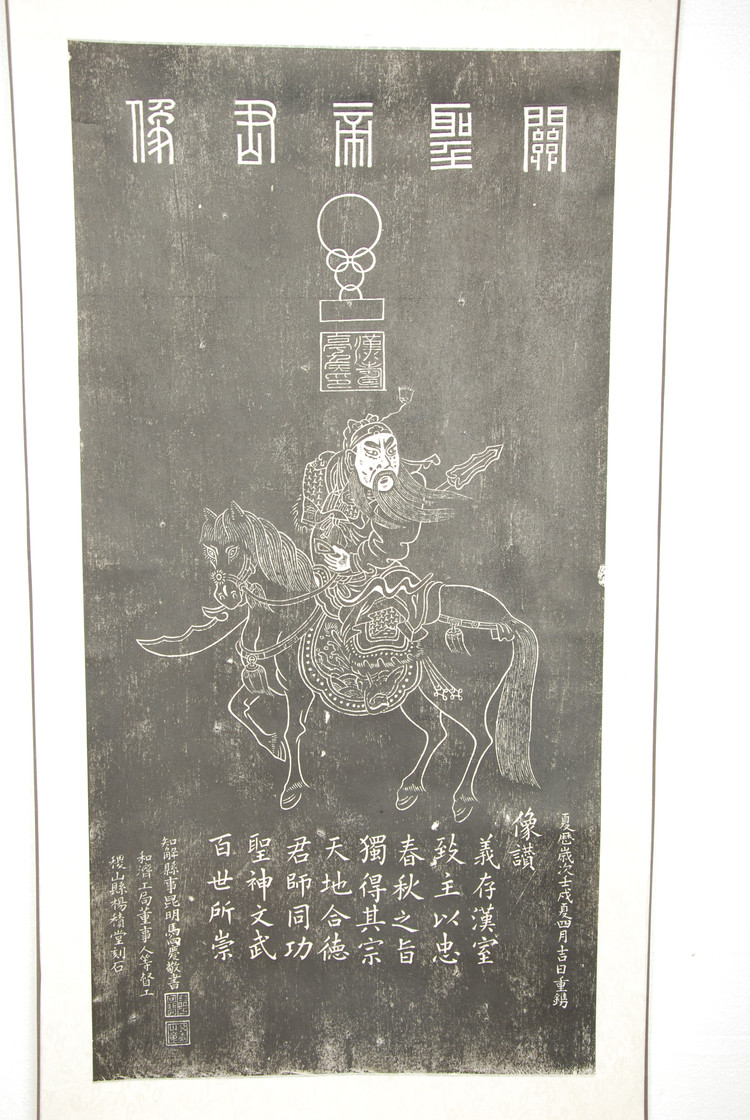 關聖帝君像
漢壽
亭侯印
夏曆歲次壬戌夏四月吉日重鐫
像讃
義存漢室
致主以忠
春秋之旨
獨得其宗
天地合德
君師同功
聖神文武
百世所崇
知解縣事昆明馬慶敬書
和濟工局董事人等督工
稷山縣楊積堂刻石